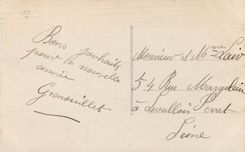 Bons souhaits
pour la nouvelle
année
Grenouillet
Monsieur et Mme
54 Rue
à Levallois Perret
Seine